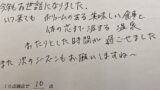 今年もお世話になりました。
いつ来ても ボリュームのある美味しい食事と
体の芯まで浸まる温泉
ゆったりとした時間が過ごせました
また次のシーズンもお願いしますね〜
10点満点で 10 点